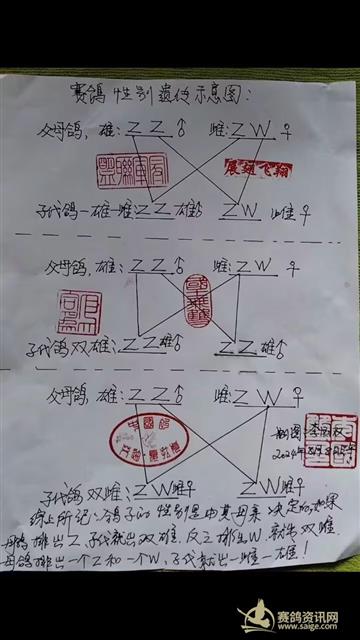 赛鸽性别遗传示意图：
父母鸽，雄：ZZ♂ 雌：ZW♀
展翅飞翔
子代鸽一雄一雌：ZZ雄♂ ZW雌♀
父母鸽，雄：ZZ♂ 雌：ZW♀
子代鸽双雄：ZZ雄♂ ZZ雄♂
父母鸽，雄：ZZ♂ 雌：ZW♀
中国鸽
制图：李
2024年8月8日
子代鸽双雌：ZW雌♀ ZW雌♀
综上所记：鸽子的性别是由其母亲决定的，如果
母鸽排出Z、子代就出双雄，反之排出W、就出双雌
母鸽排出一个Z和一个W，子代就出一雌一雄！
赛鸽资讯网
www.saige.com